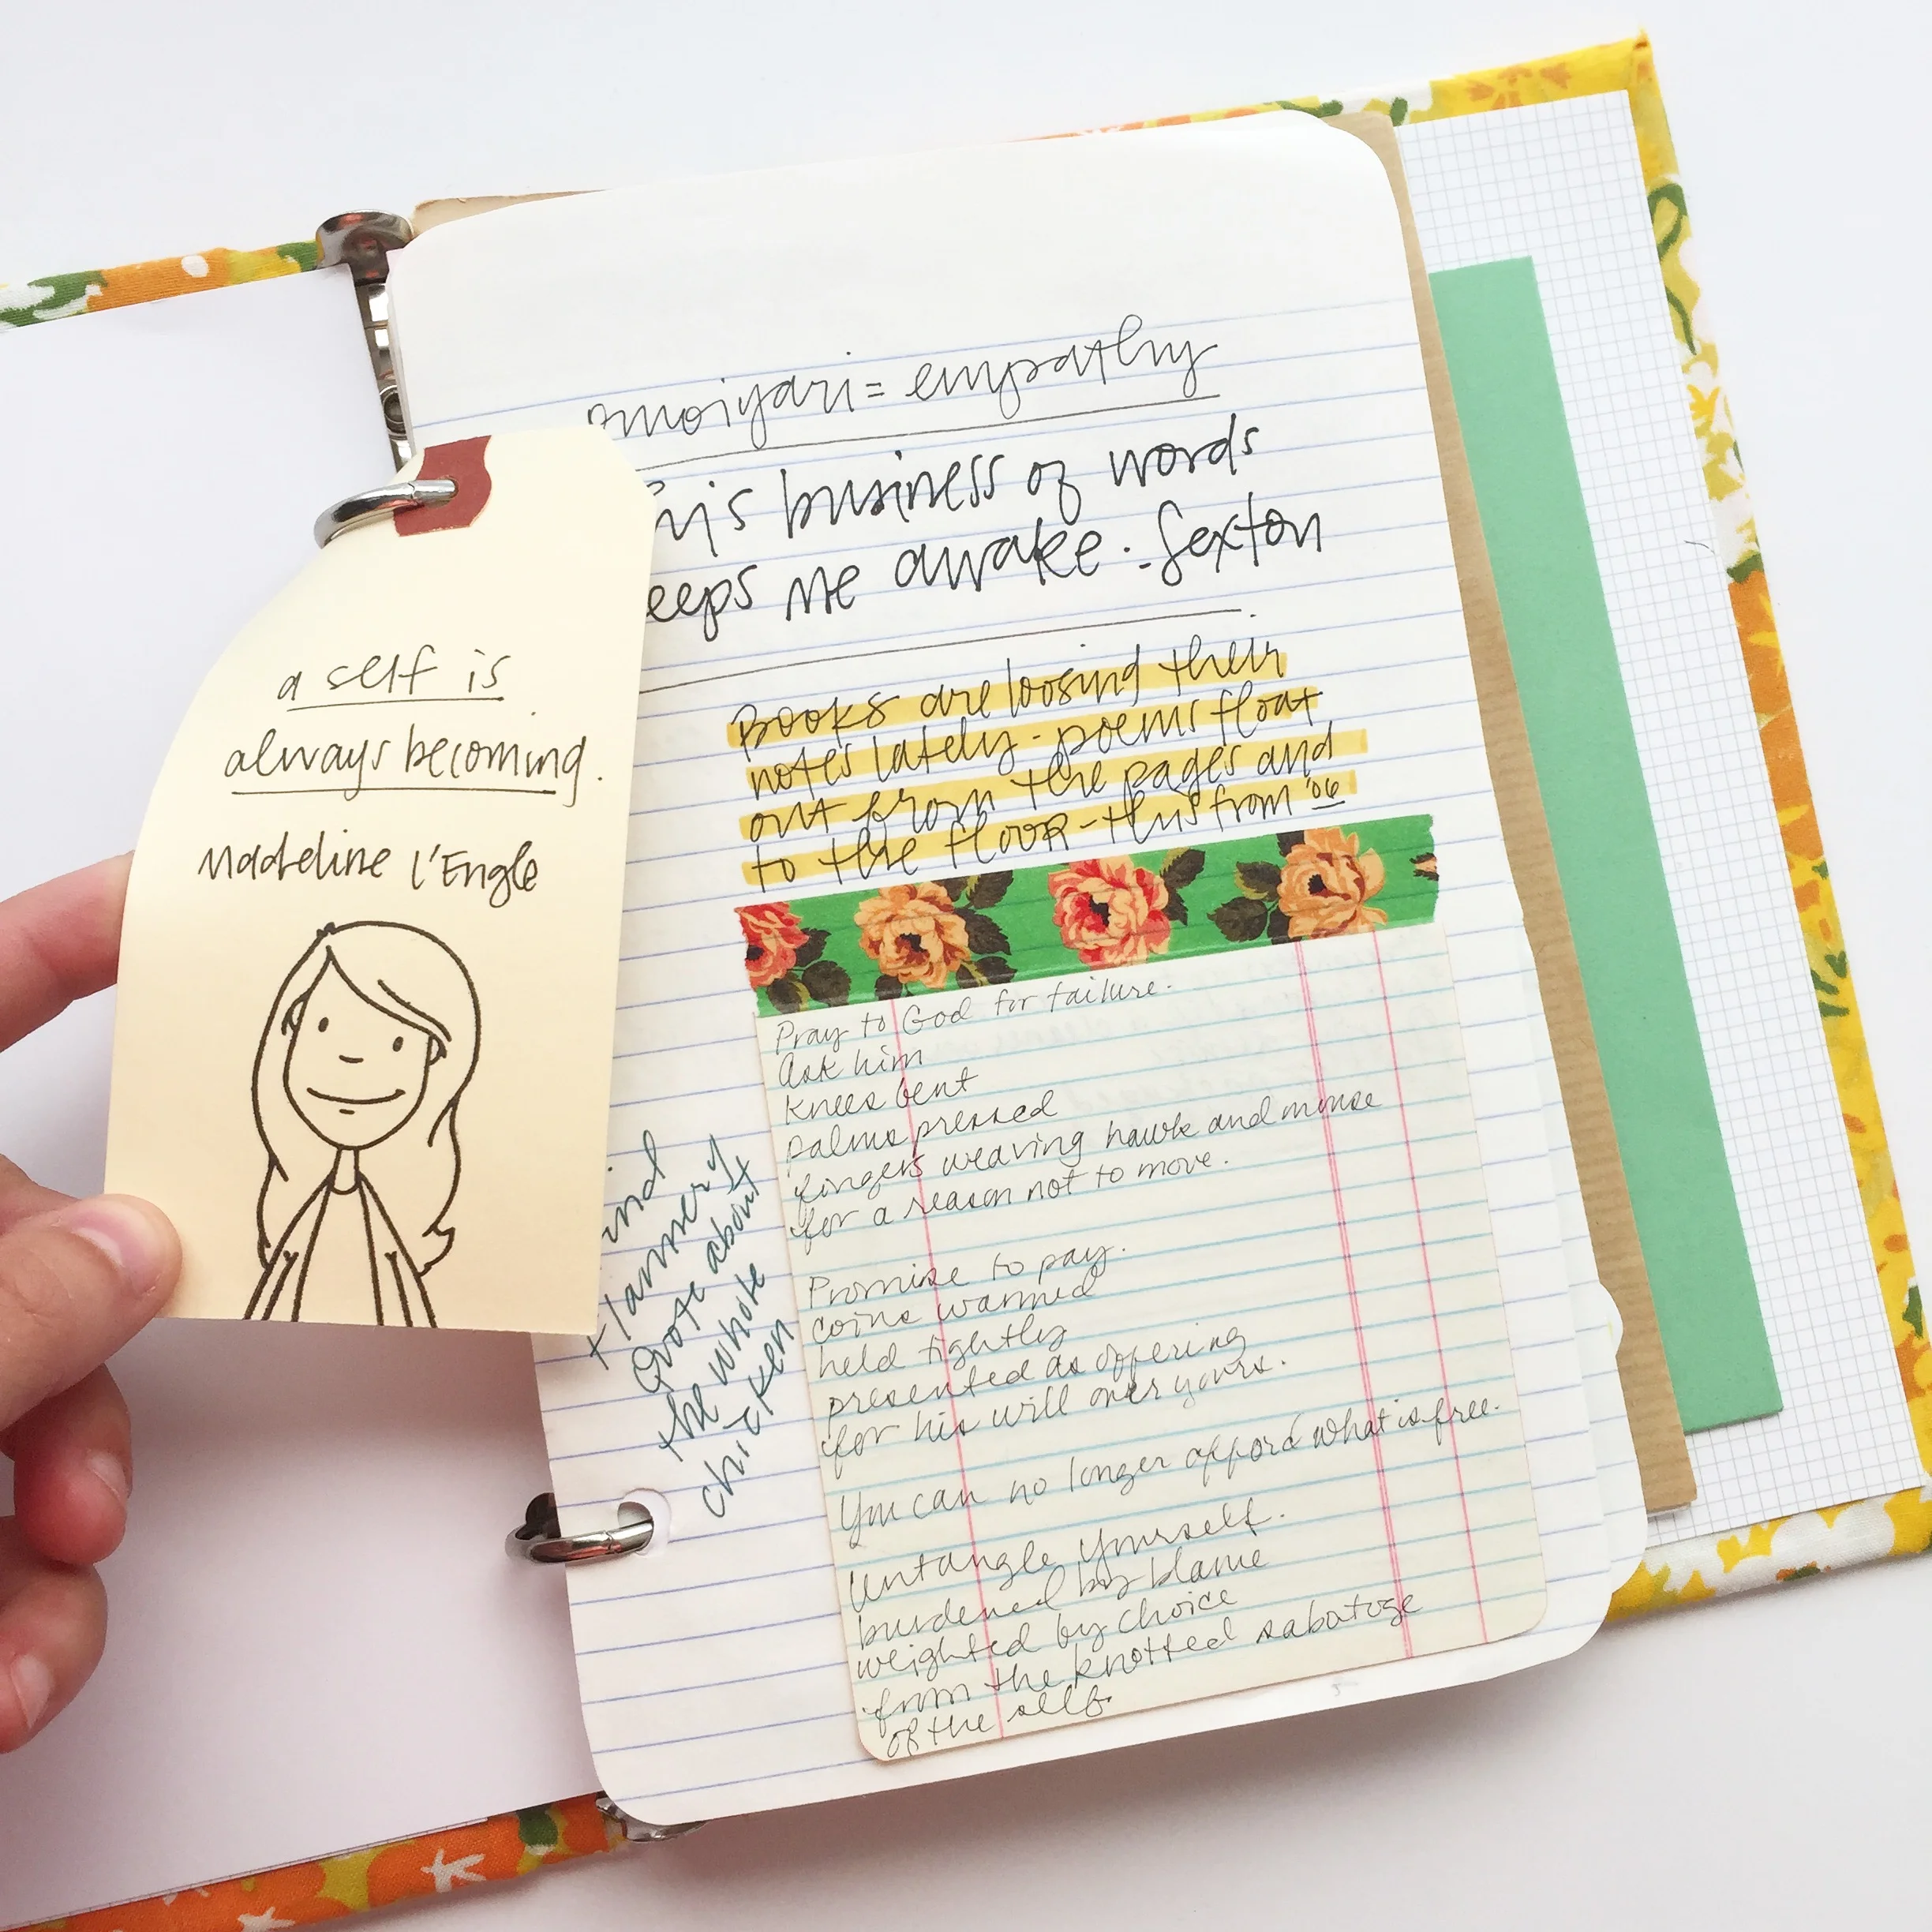 a self is
always becoming.
Madeline l'Engle
omoiyari = empathy
his business of words
eeps me awake. - Sexton
Books are loosing their
notes lately - poems float
out from the pages and
to the floor - this from '06
Pray to God for failure.
Ask him
knees bent
palms pressed
fingers weaving hawk and mouse
for a reason not to move.
Promise to pay.
coins warmed
held tightly
presented as offering
for his will over yours.
You can no longer afford what is free.
Untangle yourself.
burdened by blame
weighted by choice
from the knotted sabotoge
of the self.
ind
Flannery
Quote about
the whole
chicken